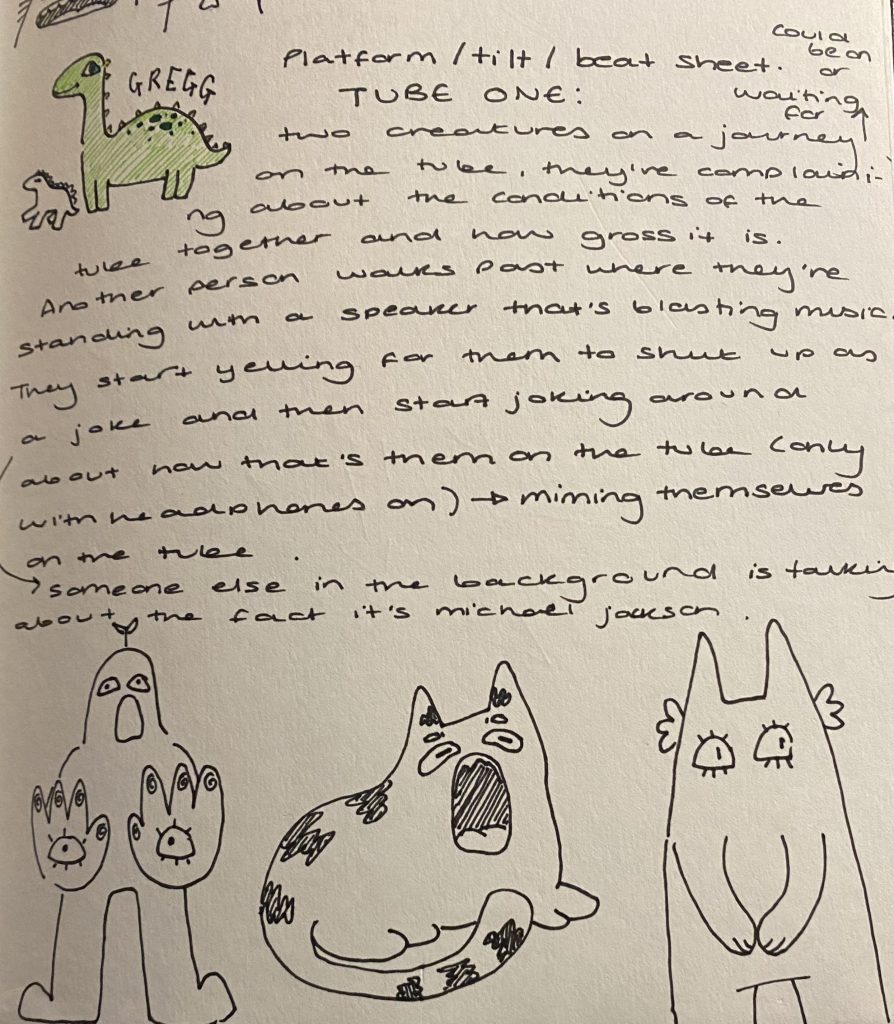 GREGG
Platform / tilt / beat sheet.
could
be on
or
waiting
for
TUBE ONE:
two creatures on a journey
on the tube, they're complaidi-
ng about the conditions of the
tube together and how gross it is.
Another person walks past where they're
standing with a speaker that's blasting music.
They start yelling for them to shut up as
a joke and then start joking around
about how that's them on the tube (only
with headphones on) → miming themselves
on the tube.
→ someone else in the background is talkin
about the fact it's michael jackson.